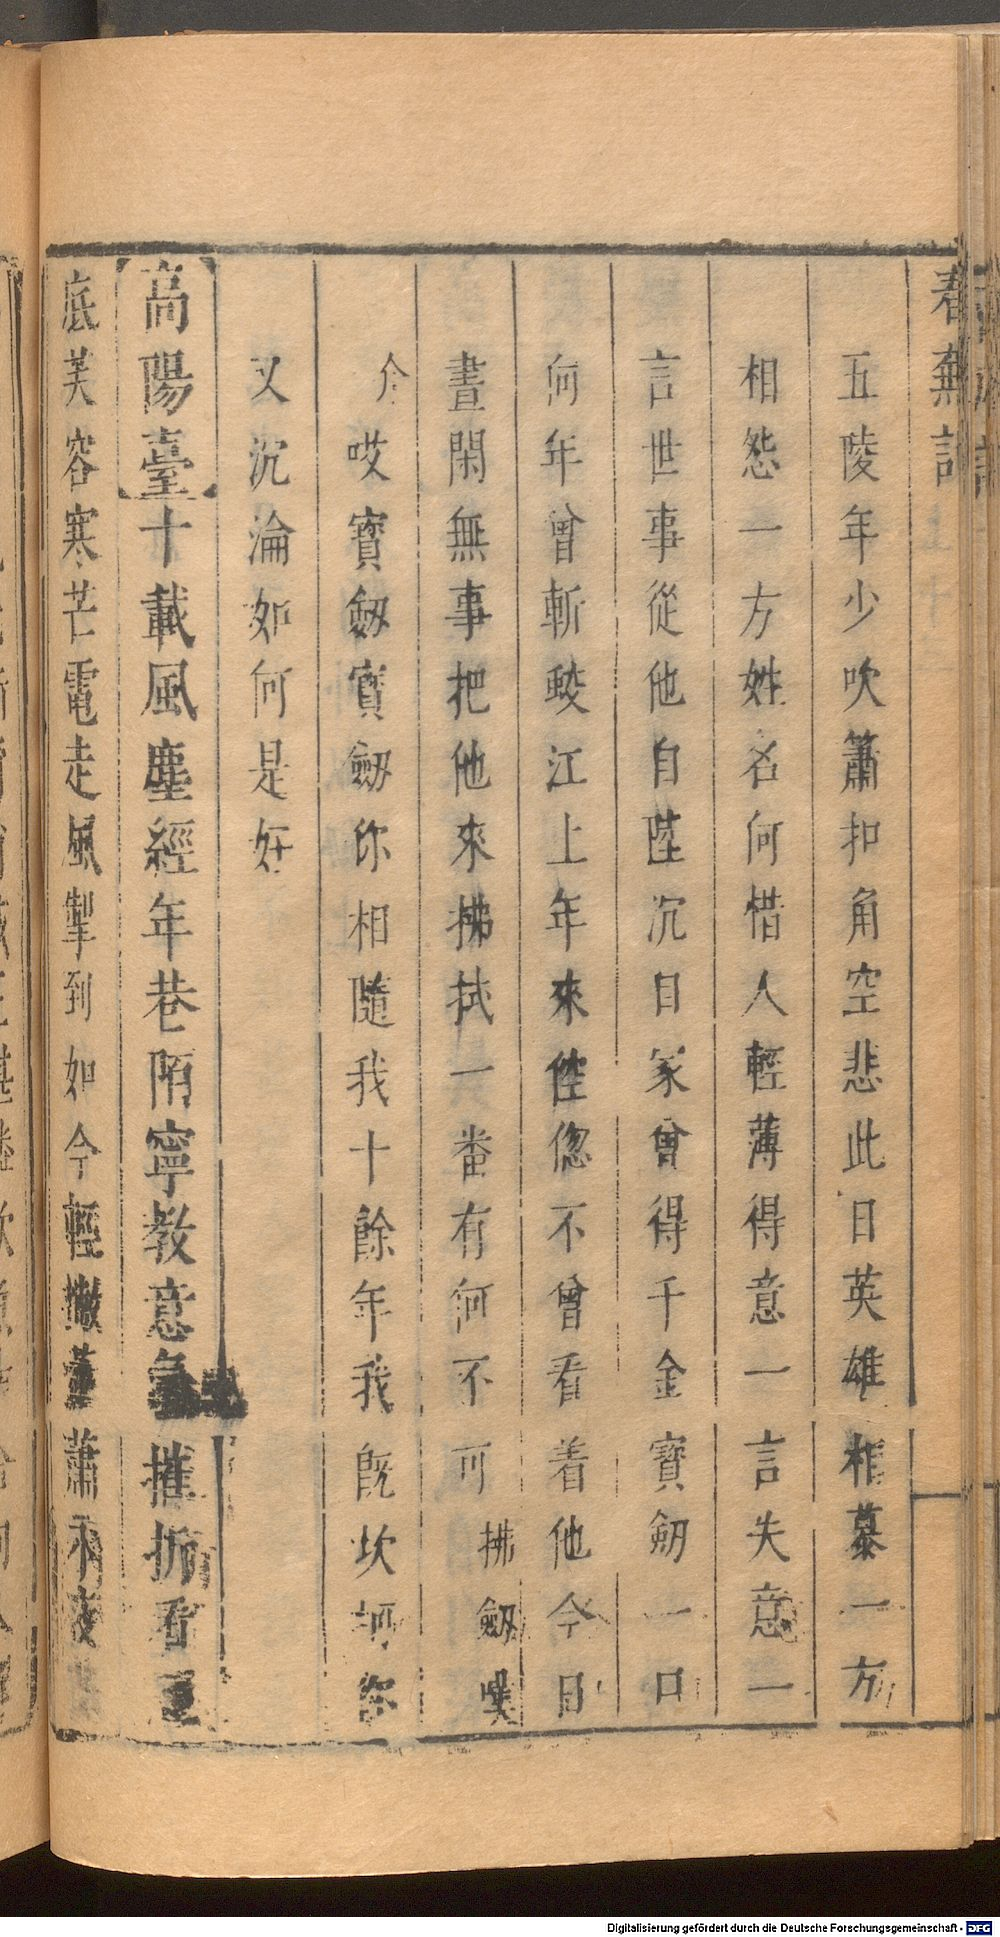 春蕪記
五陵年少吹簫扣角空悲此日英雄相慕一方
相怨一方姓名何惜人輕薄得意一言失意一
言世事從他自陸沉目家曾得千金寶劒一口
何年曾斬蛟江上年來倥偬不曾看着他今日
晝閑無事把他來拂拭一番有何不可拂劒嘆
介哎寶劒寶劒你相隨我十餘年我旣坎坷你
又沉淪如何是好
高陽臺十載風塵經年巷陌寧教意氣摧折看
底芙容寒芒電走風掣到如今輕撇蕭
Digitalisierung gefördert durch die Deutsche Forschungsgemeinschaft - DFG